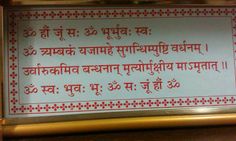 ॐ हौं जूं सः ॐ भूर्भुवः स्वः
ॐ त्र्यम्बकं यजामहे सुगन्धिम्पुष्टि वर्धनम् ।
उर्वारुकमिव बन्धनान् मृत्योर्मुक्षीय माऽमृतात् ।
ॐ स्वः भुवः भूः ॐ सः जूं हौं ॐ